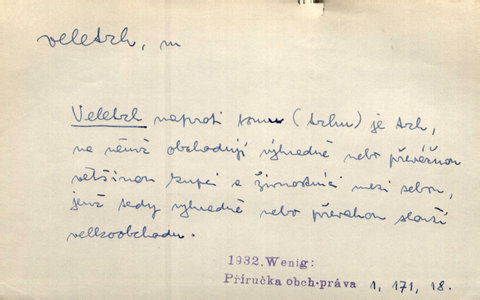 veletrh, m
Veletrh naproti tomu (trhu) je trh,
na němž obchodují výhradně nebo převážnou
většinou kupci a živnostníci mezi sebou,
jenž tedy výhradně nebo převahou slouží
velkoobchodu.
1932. Wenig:
Příručka obch.práva 1, 171, 18.